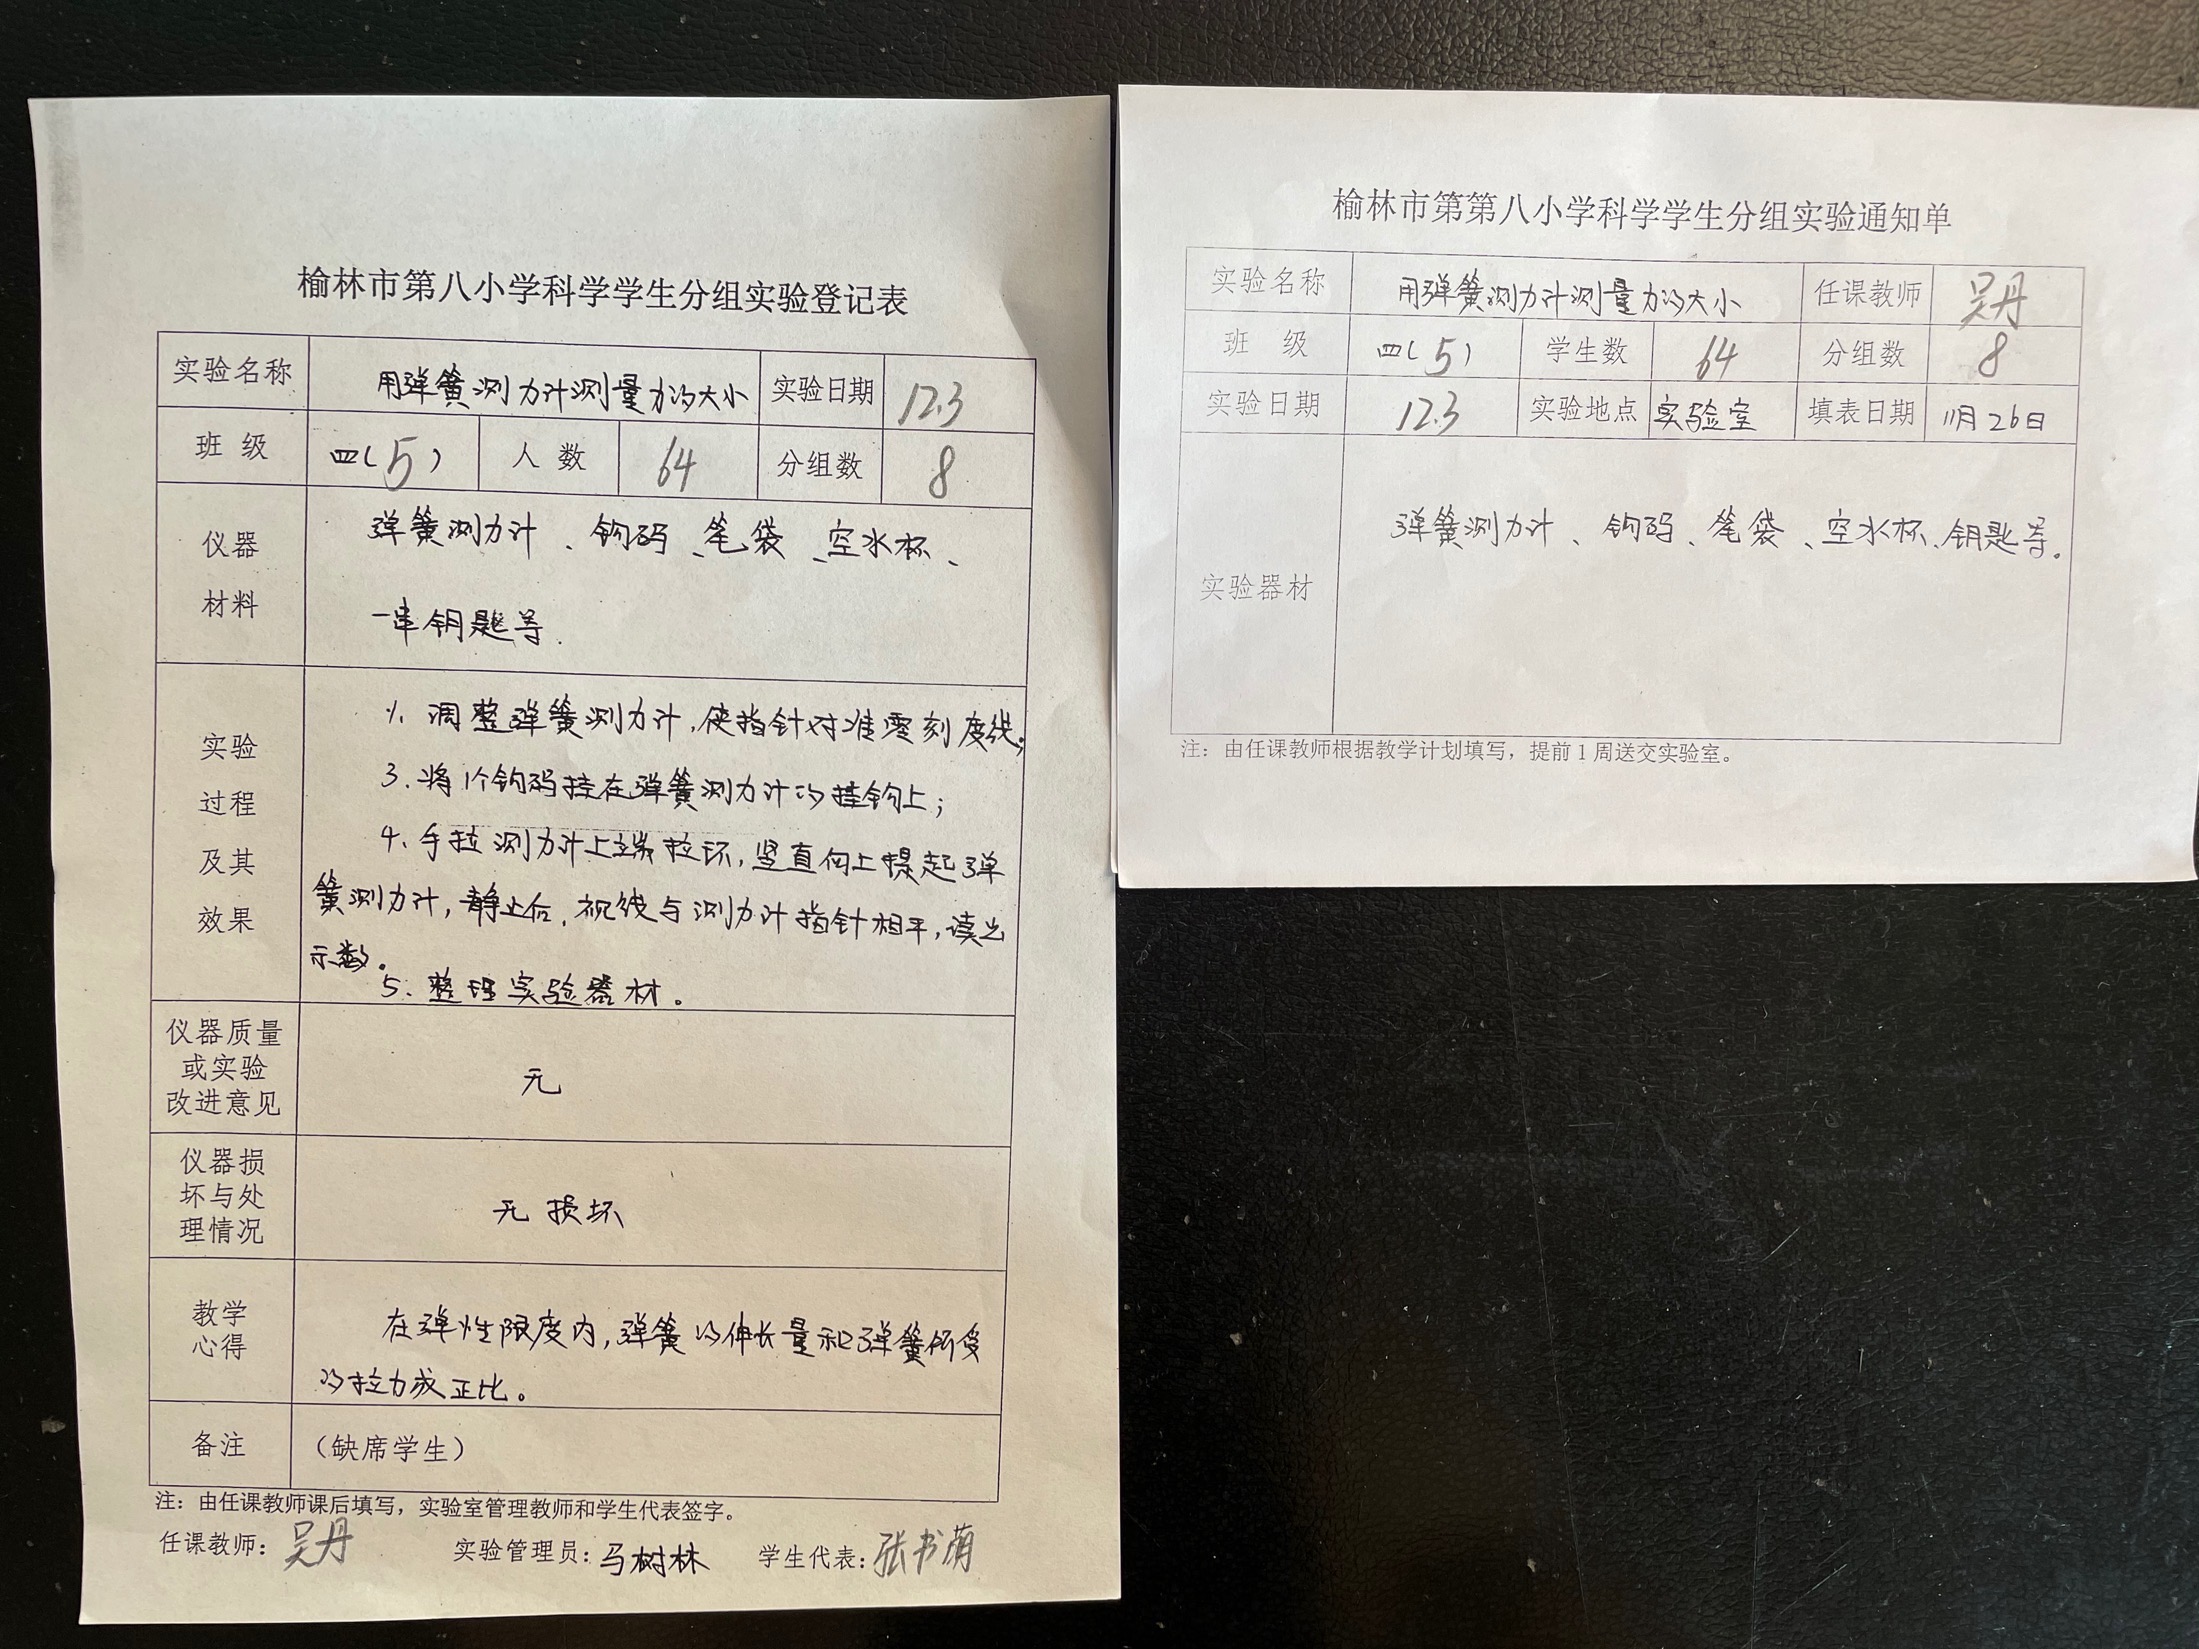 榆林市第八小学科学学生分组实验登记表
实验名称 用弹簧测力计测量力的大小 实验日期 12.3
班 级 四(5) 人 数 64 分组数 8
仪器
材料
弹簧测力计、钩码、笔袋、空水杯、
一串钥匙等.
实验
过程
及其
效果
1. 调整弹簧测力计,使指针对准零刻度线;
3. 将1个钩码挂在弹簧测力计的挂钩上;
4. 手拉测力计上端拉环,竖直向上提起弹
簧测力计,静止后,视线与测力计指针相平,读出
示数.
5. 整理实验器材。
仪器质量
或实验
改进意见
无
仪器损
坏与处
理情况
无损坏
教学
心得
在弹性限度内,弹簧的伸长量和弹簧所受
的拉力成正比。
备注 (缺席学生)
注:由任课教师课后填写,实验室管理教师和学生代表签字。
任课教师:吴丹 实验管理员:马树林 学生代表:张书萌
榆林市第第八小学科学学生分组实验通知单
实验名称 用弹簧测力计测量力的大小 任课教师 吴丹
班 级 四(5) 学生数 64 分组数 8
实验日期 12.3 实验地点 实验室 填表日期 11月26日
实验器材 弹簧测力计、钩码、笔袋、空水杯、钥匙等.
注:由任课教师根据教学计划填写,提前1周送交实验室。